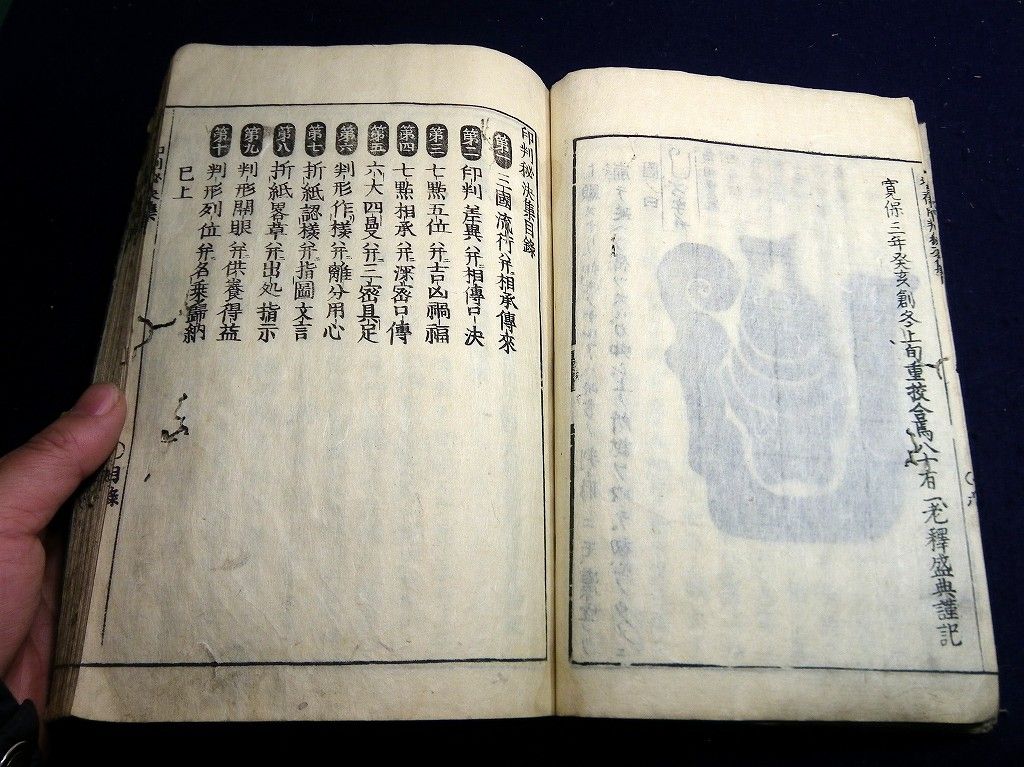 寛保三年癸亥創冬上旬重挍合焉八十有一老釋盛典謹記
印判秘決集目錄
第一 三國流行幷相承傳來
第二 印判差異幷相傳口決
第三 七點五位幷吉凶禍福
第四 七點相承幷深密口傳
第五 六大四曼幷三密具足
第六 判形作樣幷離分用心
第七 折紙認樣幷指圖文言
第八 折紙畧草幷出処指示
第九 判形開眼幷供養得益
第十 判形列位幷名乘歸納
巳上
目錄